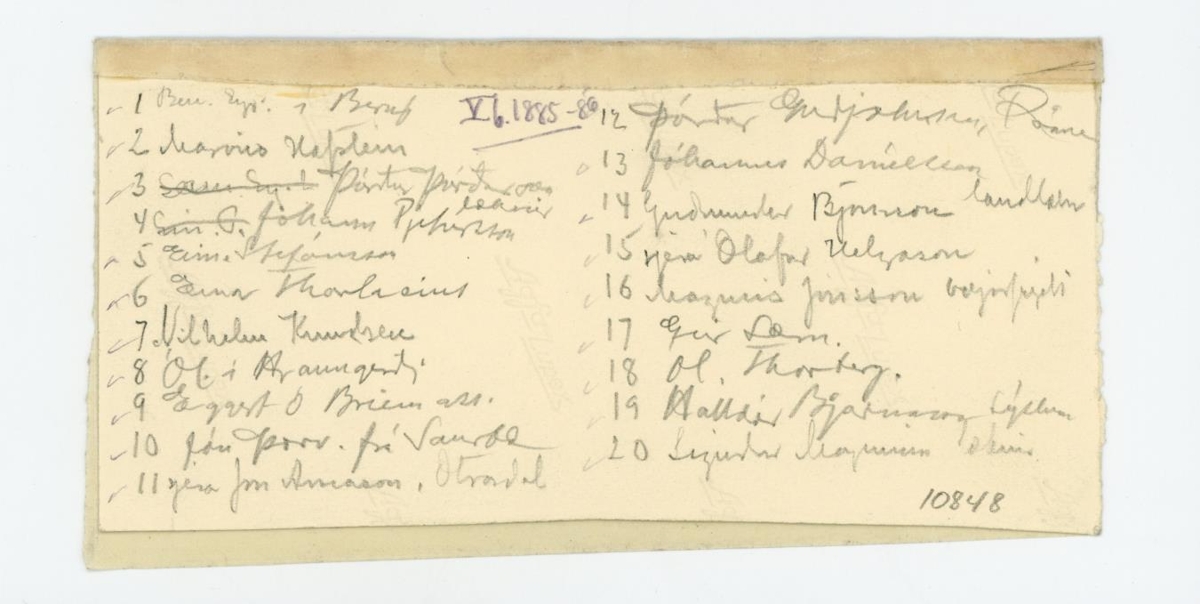 1 Ben. Eyj. í Beruf
2 Marinó Hafstein
3 Þórður Þórðarson
læknir
4 Jóhann Pjetursson
5 Ein. Stefánsson
6 Einar Thorlacius
7 Vilhelm Knudsen
8 Ól. í Hraungerði
9 Eggert Ó Briem ass.
10 Jón Þorv. frá Saurbæ
11 sjera Jón Árnason, Otradal
V b. 1885-86
12 Þórður Guðjohnsen, Rönne
13 Jóhannes Daníelsson
14 Guðmundur Björnsson landlækn
15 sjera Ólafur Helgason
16 Magnús Jónsson bæjarfógeti
17 Geir Sæm.
18 Ól. Thorberg.
19 Halldór Bjarnason Sýslum
20 Sigurður Magnússon læknir
10848